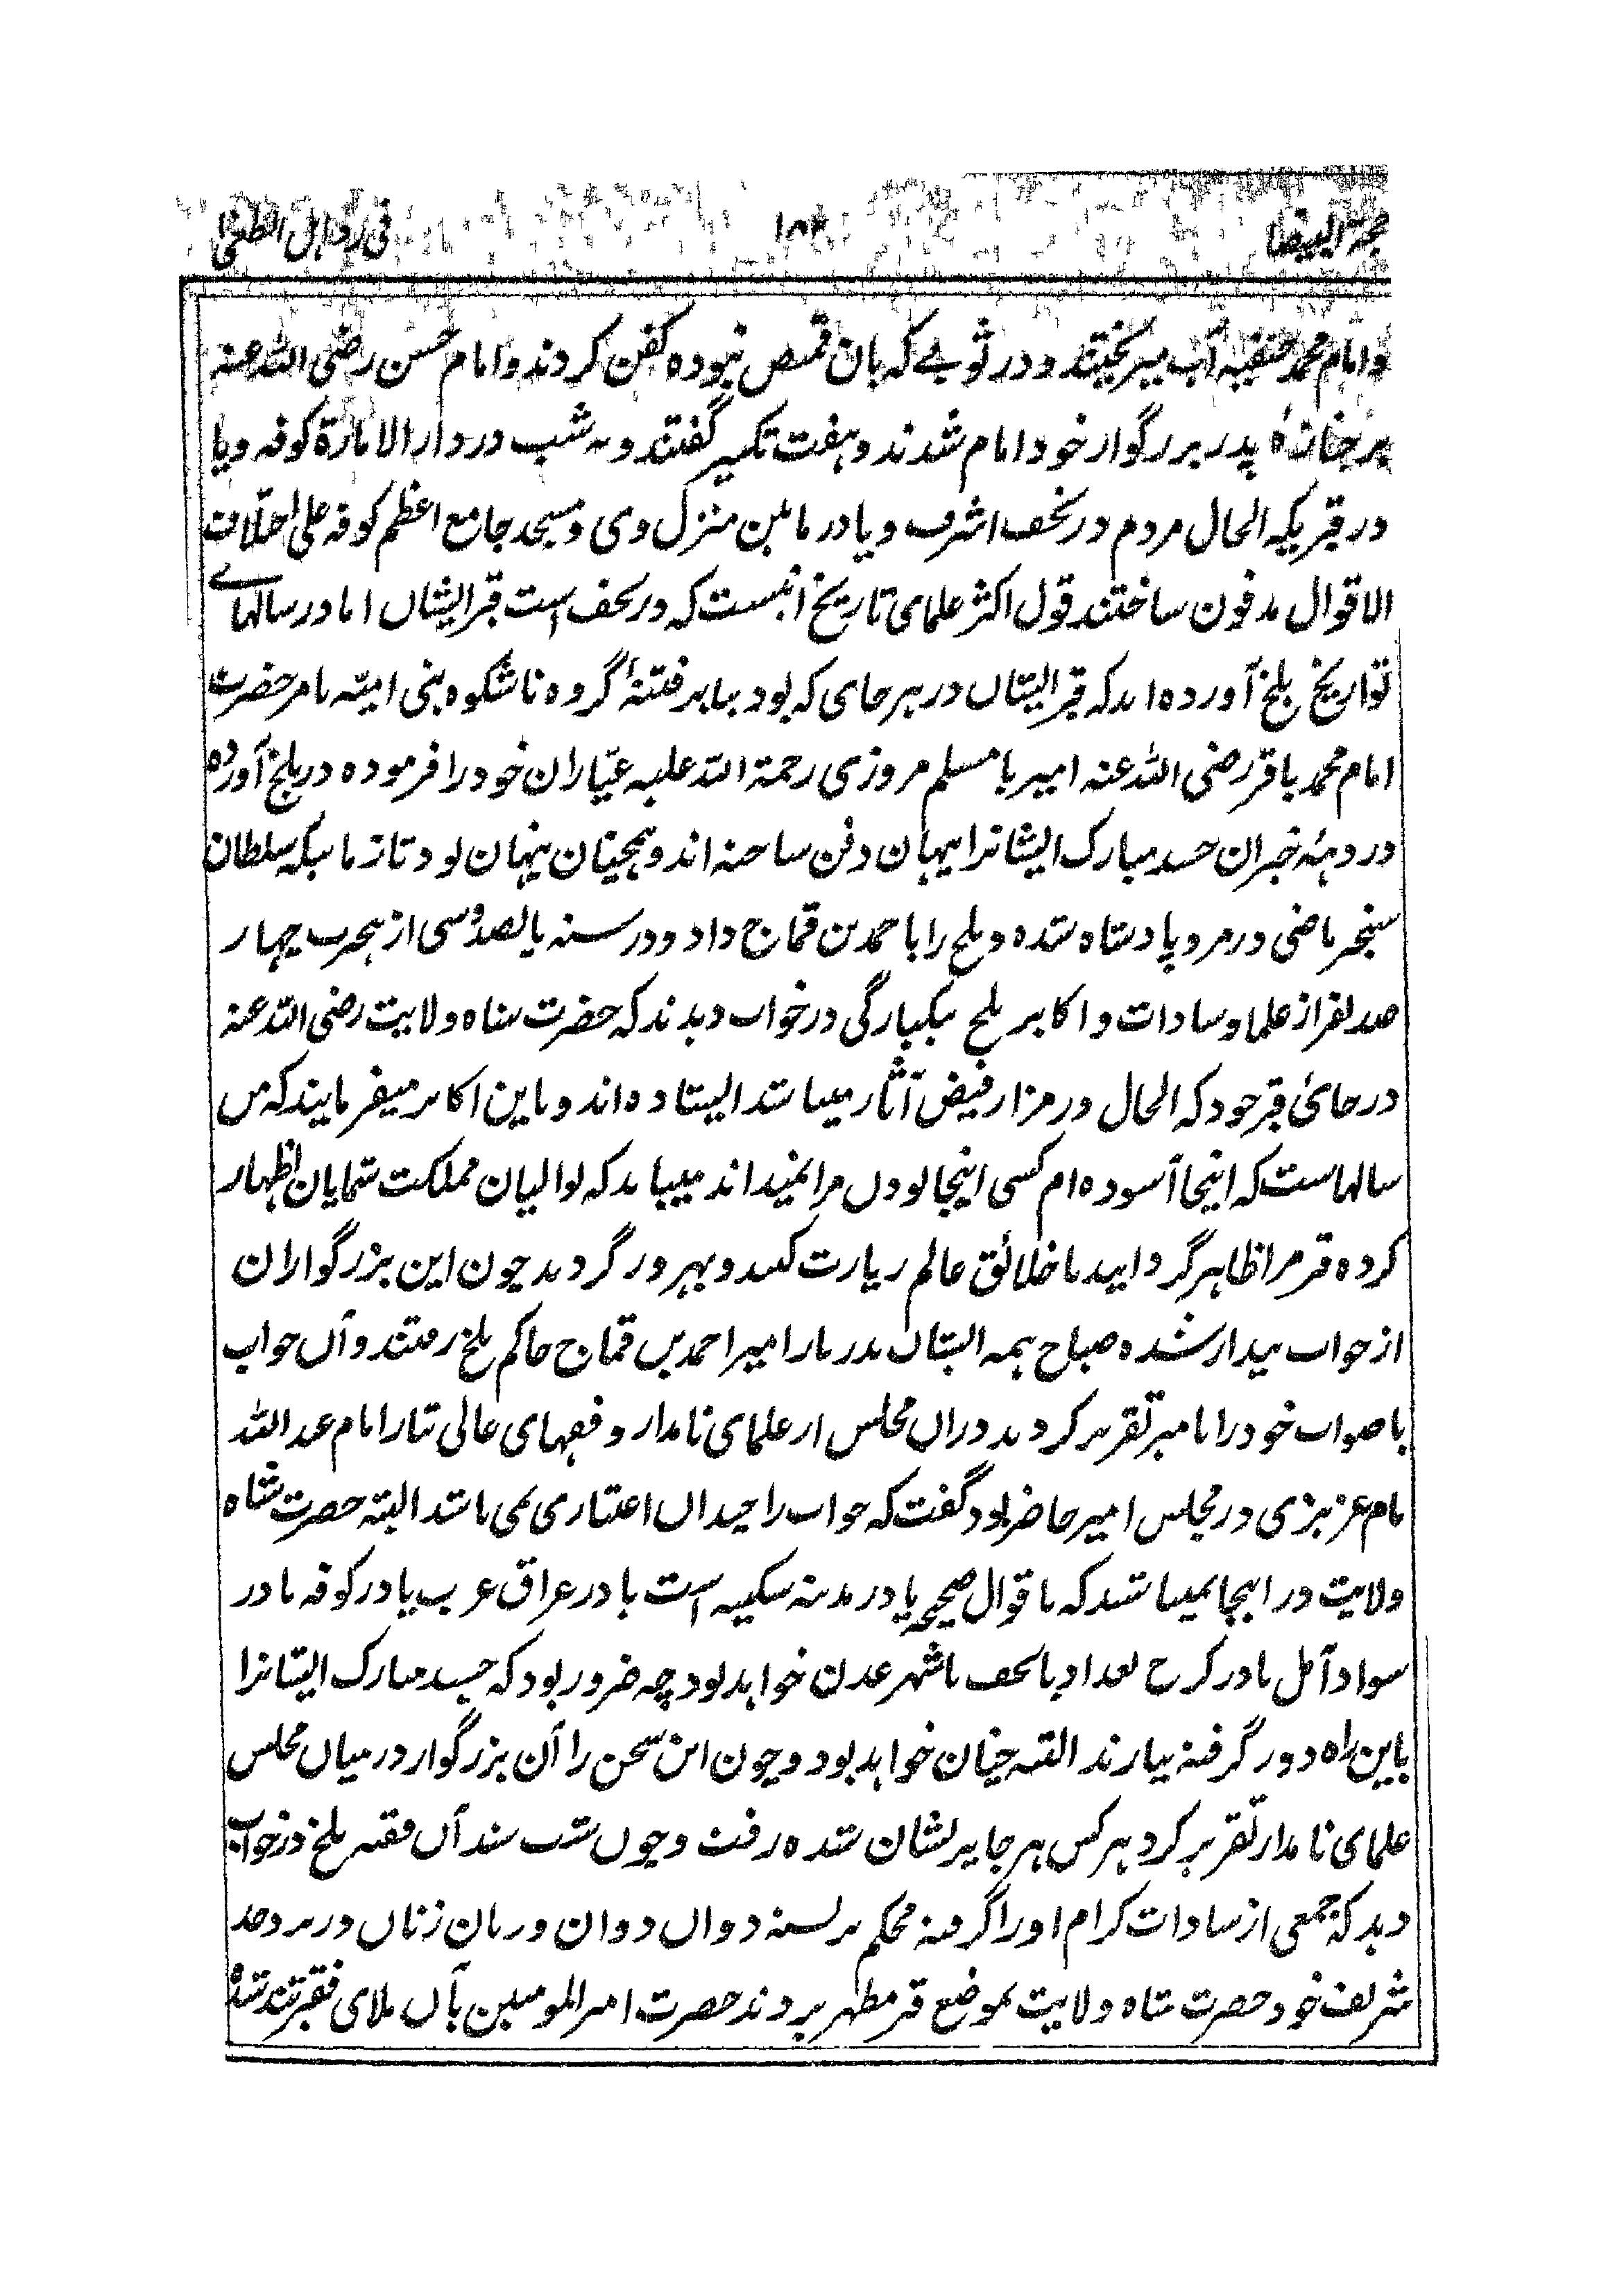 حجة البیضا ۱۵۲ فی رد اهل الطغی
و امام محمد حنفیه آب میریختند و در ثوبے که بان قمیص نبوده کفن کردند و امام حسن رضی الله عنه
بر جنازهٔ پدر بزرگوار خود امام شدند و هفت تکبیر گفتند و به شب در دار الامارة کوفه و یا
در قبریکه الحال مردم در نجف اشرف و یا در مابین منزل وی و مسجد جامع اعظم کوفه علی اختلاف
الاقوال مدفون ساختند قول اکثر علمای تاریخ انیست که در نجف است قبر ایشان اما در سالهاے
تواریخ بلخ آورده اند که قبر ایشان در هر جای که بود بنا بر فتنهٔ گروه ناشکوه بنی امیه بامر حضرت
امام محمد باقر رضی الله عنه امیر با مسلم مروزی رحمة الله علیه عیّاران خود را فرموده در بلخ آورده
در دهنهٔ خبران جسد مبارک ایشانرا پنهان دفن ساخته اند و همچنان پنهان بود تا زمانیکه سلطان
سنجر ماضی در مرو پادشاه شده و بلخ را با حمد بن قماج داد و در سنه پانصد و سی از هجرت چهار
صد نفر از علما و سادات و اکابر بلخ بیکبارگی در خواب دیدند که حضرت شاه ولایت رضی الله عنه
در جائ قبر خود که الحال در مزار فیض آثار میباشد ایستاده اند و باین اکابر میفرمایند که من
سالهاست که اینجا آسوده ام کسی اینجا بودن مرا نمیداند میباید که بوالیان مملکت شمایان اظهار
کرده قبر مرا ظاهر گردانید تا خلائق عالم زیارت کنند و بهرور گردند چون این بزرگواران
از خواب بیدار شده صباح همه ایشان بدربار امیر احمد بن قماج حاکم بلخ رفتند و آن خواب
با صواب خود را بامیر تقریر کردند در آن مجلس از علمای نامدار و فقهای عالی تبار امام عبد الله
نام عزیزی در مجلس امیر حاضر بود گفت که خواب را چندان اعتباری نمی باشد البته حضرت شاه
ولایت در اینجا نمیباشند که باقوال صحیحه یا در مدینه سکینه است یا در عراق عرب یا در کوفه یا در
سواد آمل یا در کرخ بغداد یا نجف یا شهر عدن خواهد بود چه ضرور بود که جسد مبارک ایشانرا
باین راه دور گرفته بیارند البته چنان خواهد بود و چون این سخن را آن بزرگوار در میان مجلس
علمای نامدار تقریر کرد هر کس هر جا پریشان شده رفت و چون شب شد آن فقیه بلخ در خواب
دید که جمعی از سادات کرام او را گرفته محکم بر بسته دوان دوان و زنان زنان در مرقد
شریف خود حضرت شاه ولایت بموضع قبر مطهر بردند حضرت امیر المومنین بآن ملای فقیر تند شده